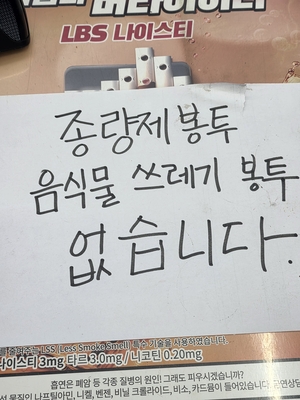 LBS 나이스티
종량제봉투
음식물 쓰레기 봉투
없습니다.
LSS (Less Smoke Smell) 특수 기술을 사용하였습니다.
나이스티 3mg 타르 3.0mg / 니코틴 0.20mg
흡연은 폐암 등 각종 질병의 원인! 그래도 피우시겠습니까?
물질인 나프틸아민, 니켈, 벤젠, 비닐 크롤라이드, 비소, 카드뮴이 들어있습니다.